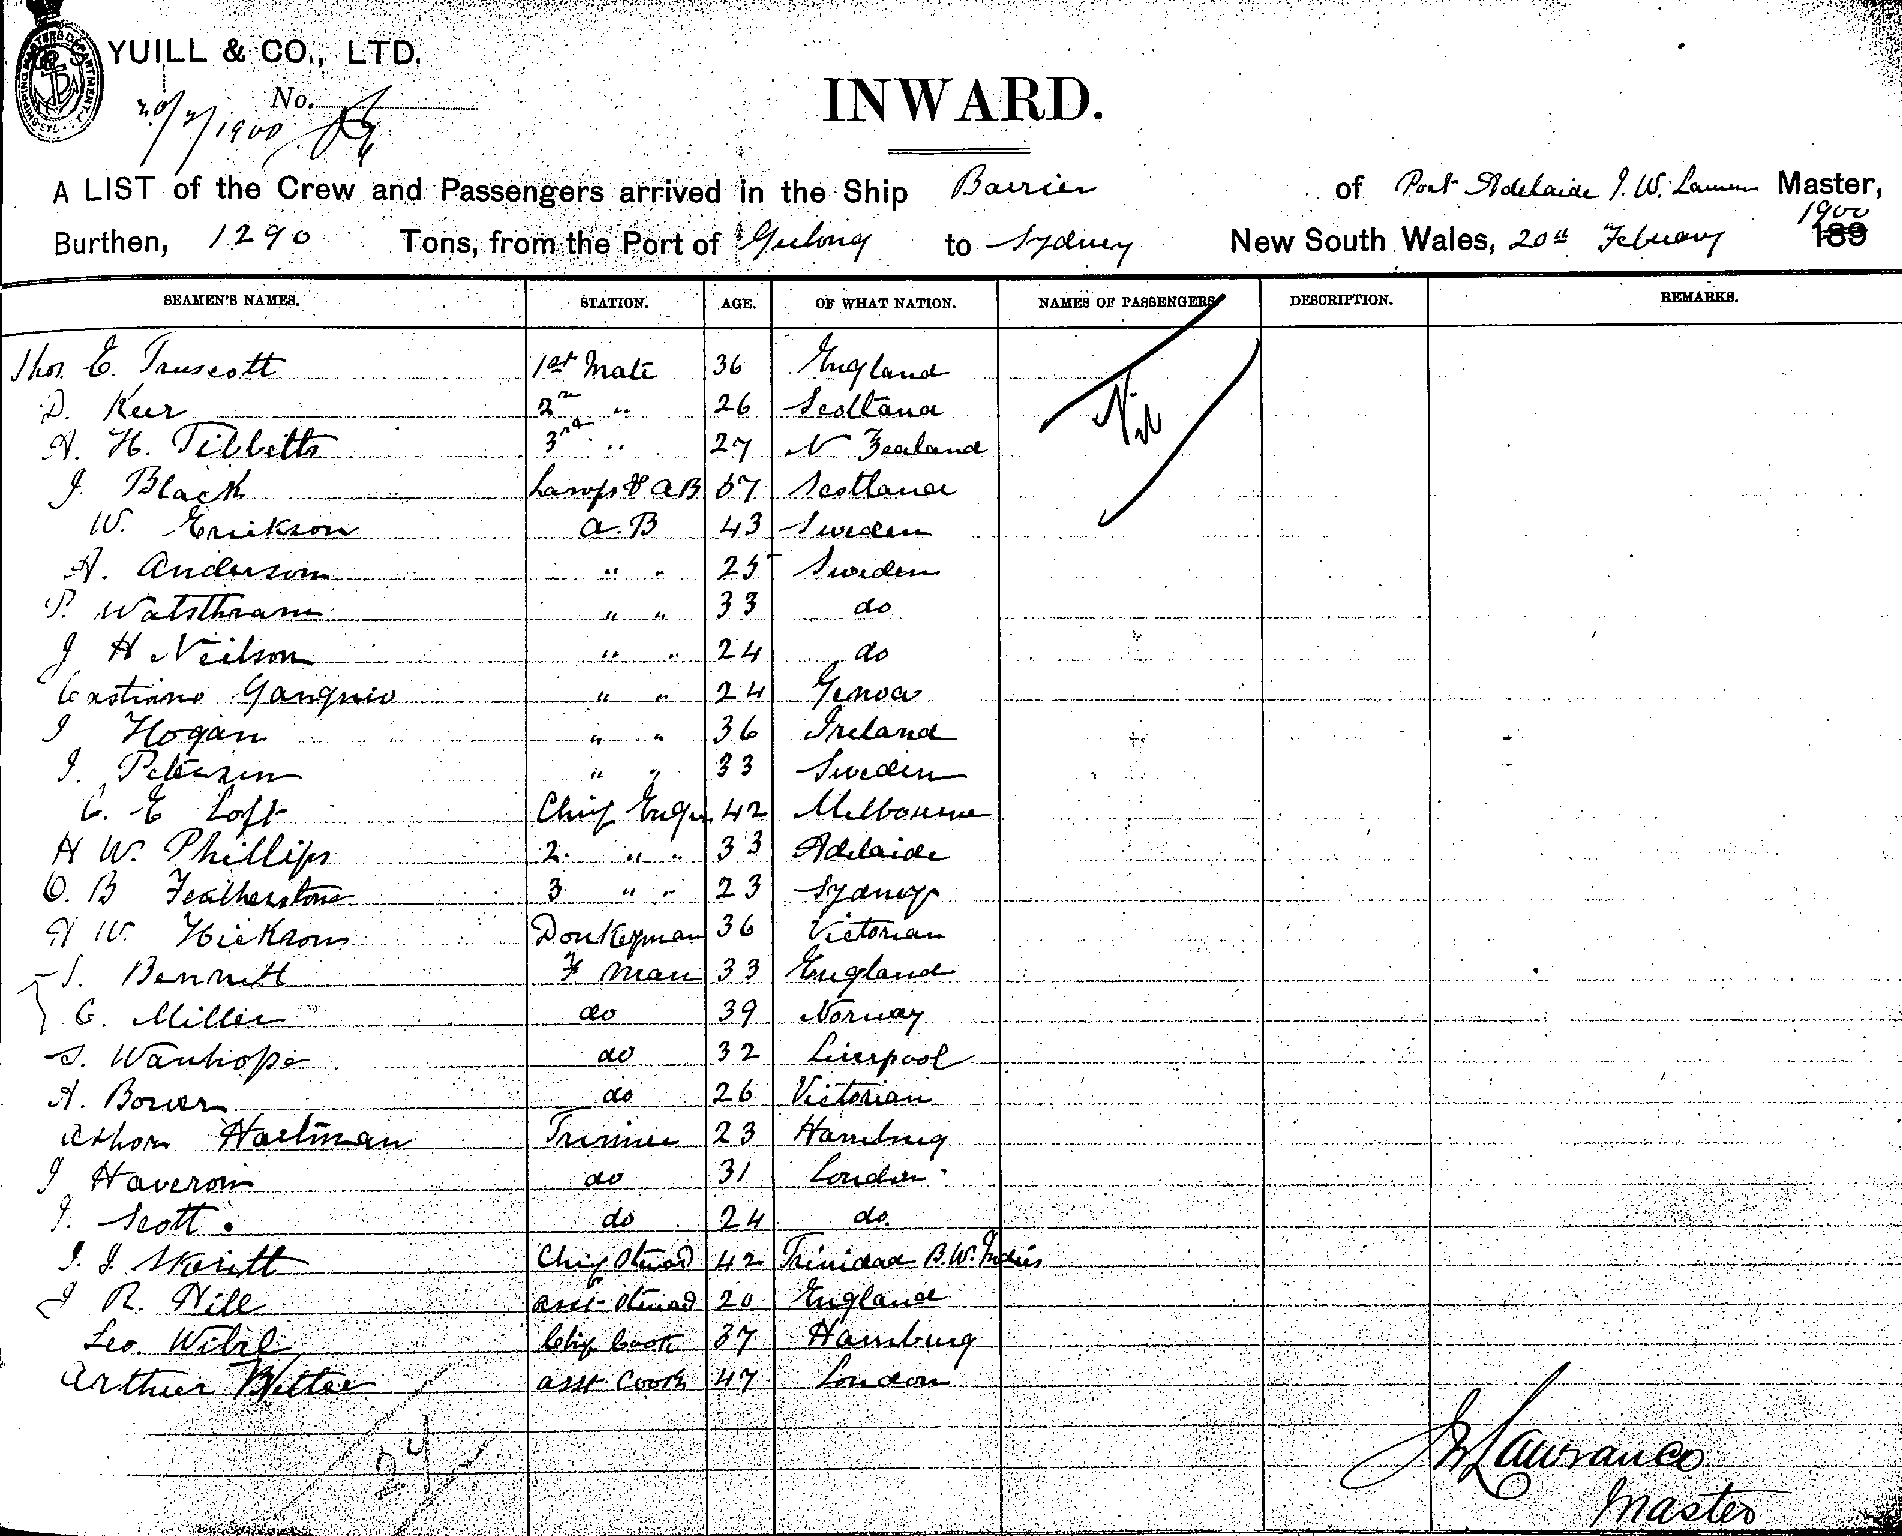 YUILL & CO., LTD.
No.
20/2/1900
INWARD.
A LIST of the Crew and Passengers arrived in the Ship Barrier of Port Adelaide J. W. Master,
Burthen, 1290 Tons, from the Port of Geelong to Sydney New South Wales, 20th February 189 1900
SEAMEN'S NAMES. STATION. AGE. OF WHAT NATION. NAMES OF PASSENGERS DESCRIPTION. REMARKS.
Thos. E. Truscott 1st Mate 36 England
D. Keer 2nd " 26 Scotland Nil
A. H. Tibbetts 3rd " 27 N Zealand
J. Black Lamps & AB 57 Scotland
W. Erickson A.B 43 Sweden
A. Anderson " " 25 Sweden
P. Watsthram " " 33 do
J H Neilson " " 24 do
" " 24 Genoa
J Hogan " " 36 Ireland
J. Petersen " " 33 Sweden
C. E Loft Chief Engr 42 Melbourne
H W. Phillips 2. " " 33 Adelaide
C. B Featherstone 3 " " 23 Sydney
H W. Hickson Donkeyman 36 Victorian
J. Bennett F man 33 England
C. Miller do 39 Norway
S. Wanhope do 32 Liverpool
A. Bower do 26 Victorian
Hartman Trimmer 23 Hamburg
J Haveron do 31 London
J. Scott do 24 do.
J. J Skeritt Chief Steward 42 Trinidad B.W. Indies
J R. Hill asst Steward 20 England
Leo Chief Cook 37 Hamburg
Arthur asst Cook 47 London
JW Lawrance
Master